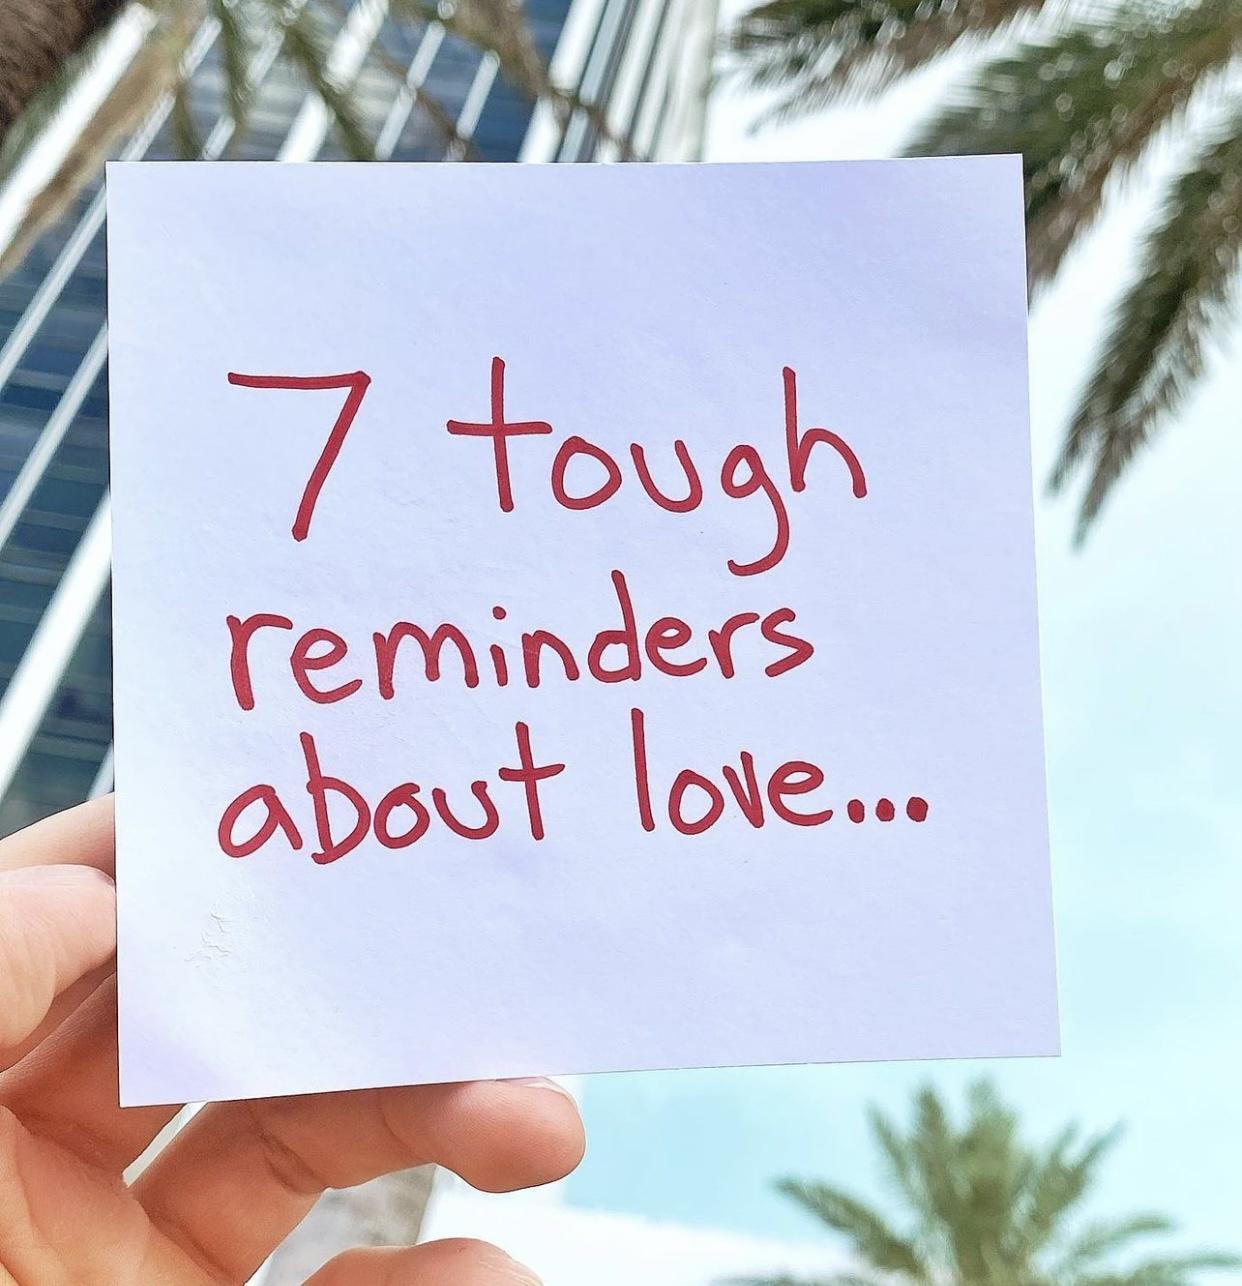 7 tough
reminders
about love...